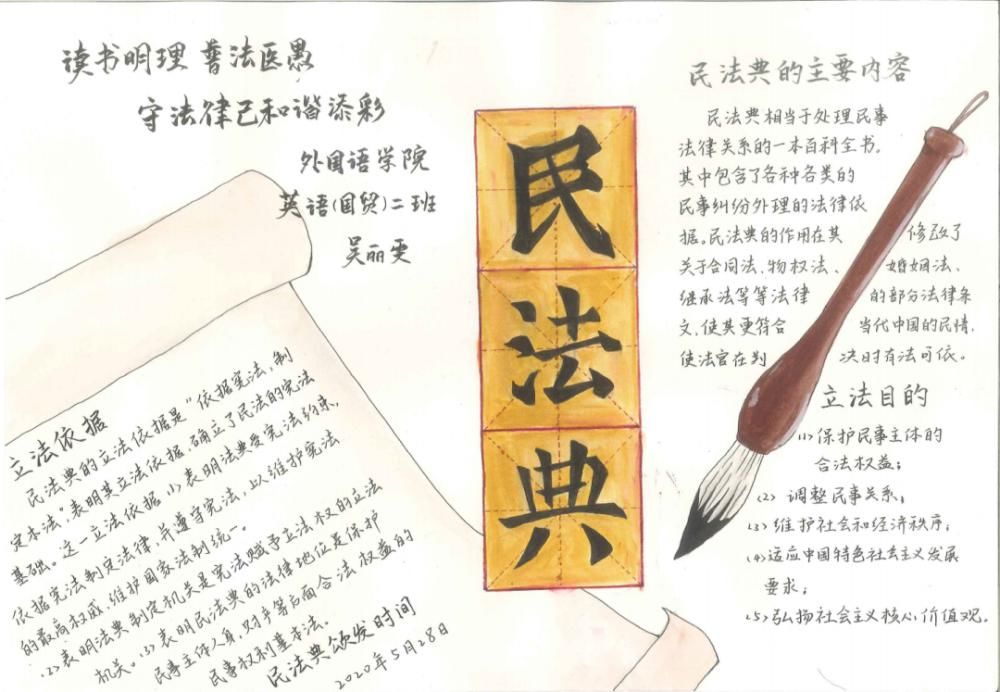 读书明理 普法医愚
守法律己和谐添彩
外国语学院
英语(国贸)二班
吴丽雯
立法依据
民法典的立法依据是“依据宪法,制
定本法”表明其立法依据,确立了民法的宪法
基础。这一立法依据(1)表明法典受宪法约束,
依据宪法制定法律,并遵守宪法,以维护宪法
的最高权威,维护国家法制统一。
(2)表明法典制定机关是宪法赋予立法权的立法
机关。(3)表明民法典的法律地位是保护
民事主体人身,财产等后面合法权益的
民事权利基本法。
民法典颁发时间
2020年5月28日
民
法
典
民法典的主要内容
民法典相当于处理民事
法律关系的一本百科全书。
其中包含了各种各类的
民事纠纷处理的法律依
据。民法典的作用在其 修改了
关于合同法、物权法、 婚姻法、
继承法等等法律 的部分法律条
文,使其更符合 当代中国的民情,
使法官在判 决时有法可依。
立法目的
(1)保护民事主体的
合法权益;
(2) 调整民事关系;
(3)维护社会和经济秩序;
(4)适应中国特色社会主义发展
要求;
(5)弘扬社会主义核心价值观。